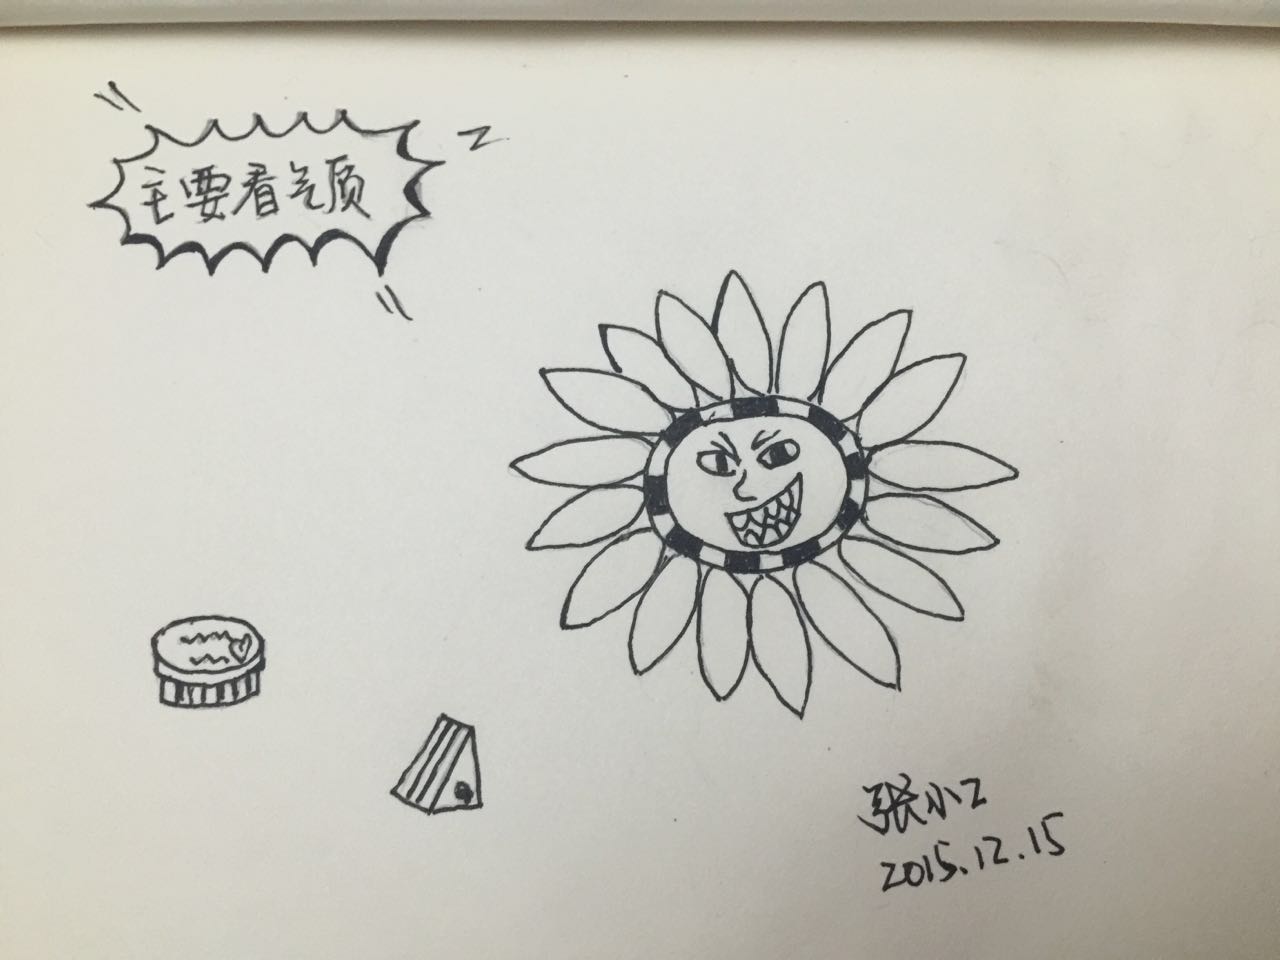 主要看气质
张小二
2015.12.15